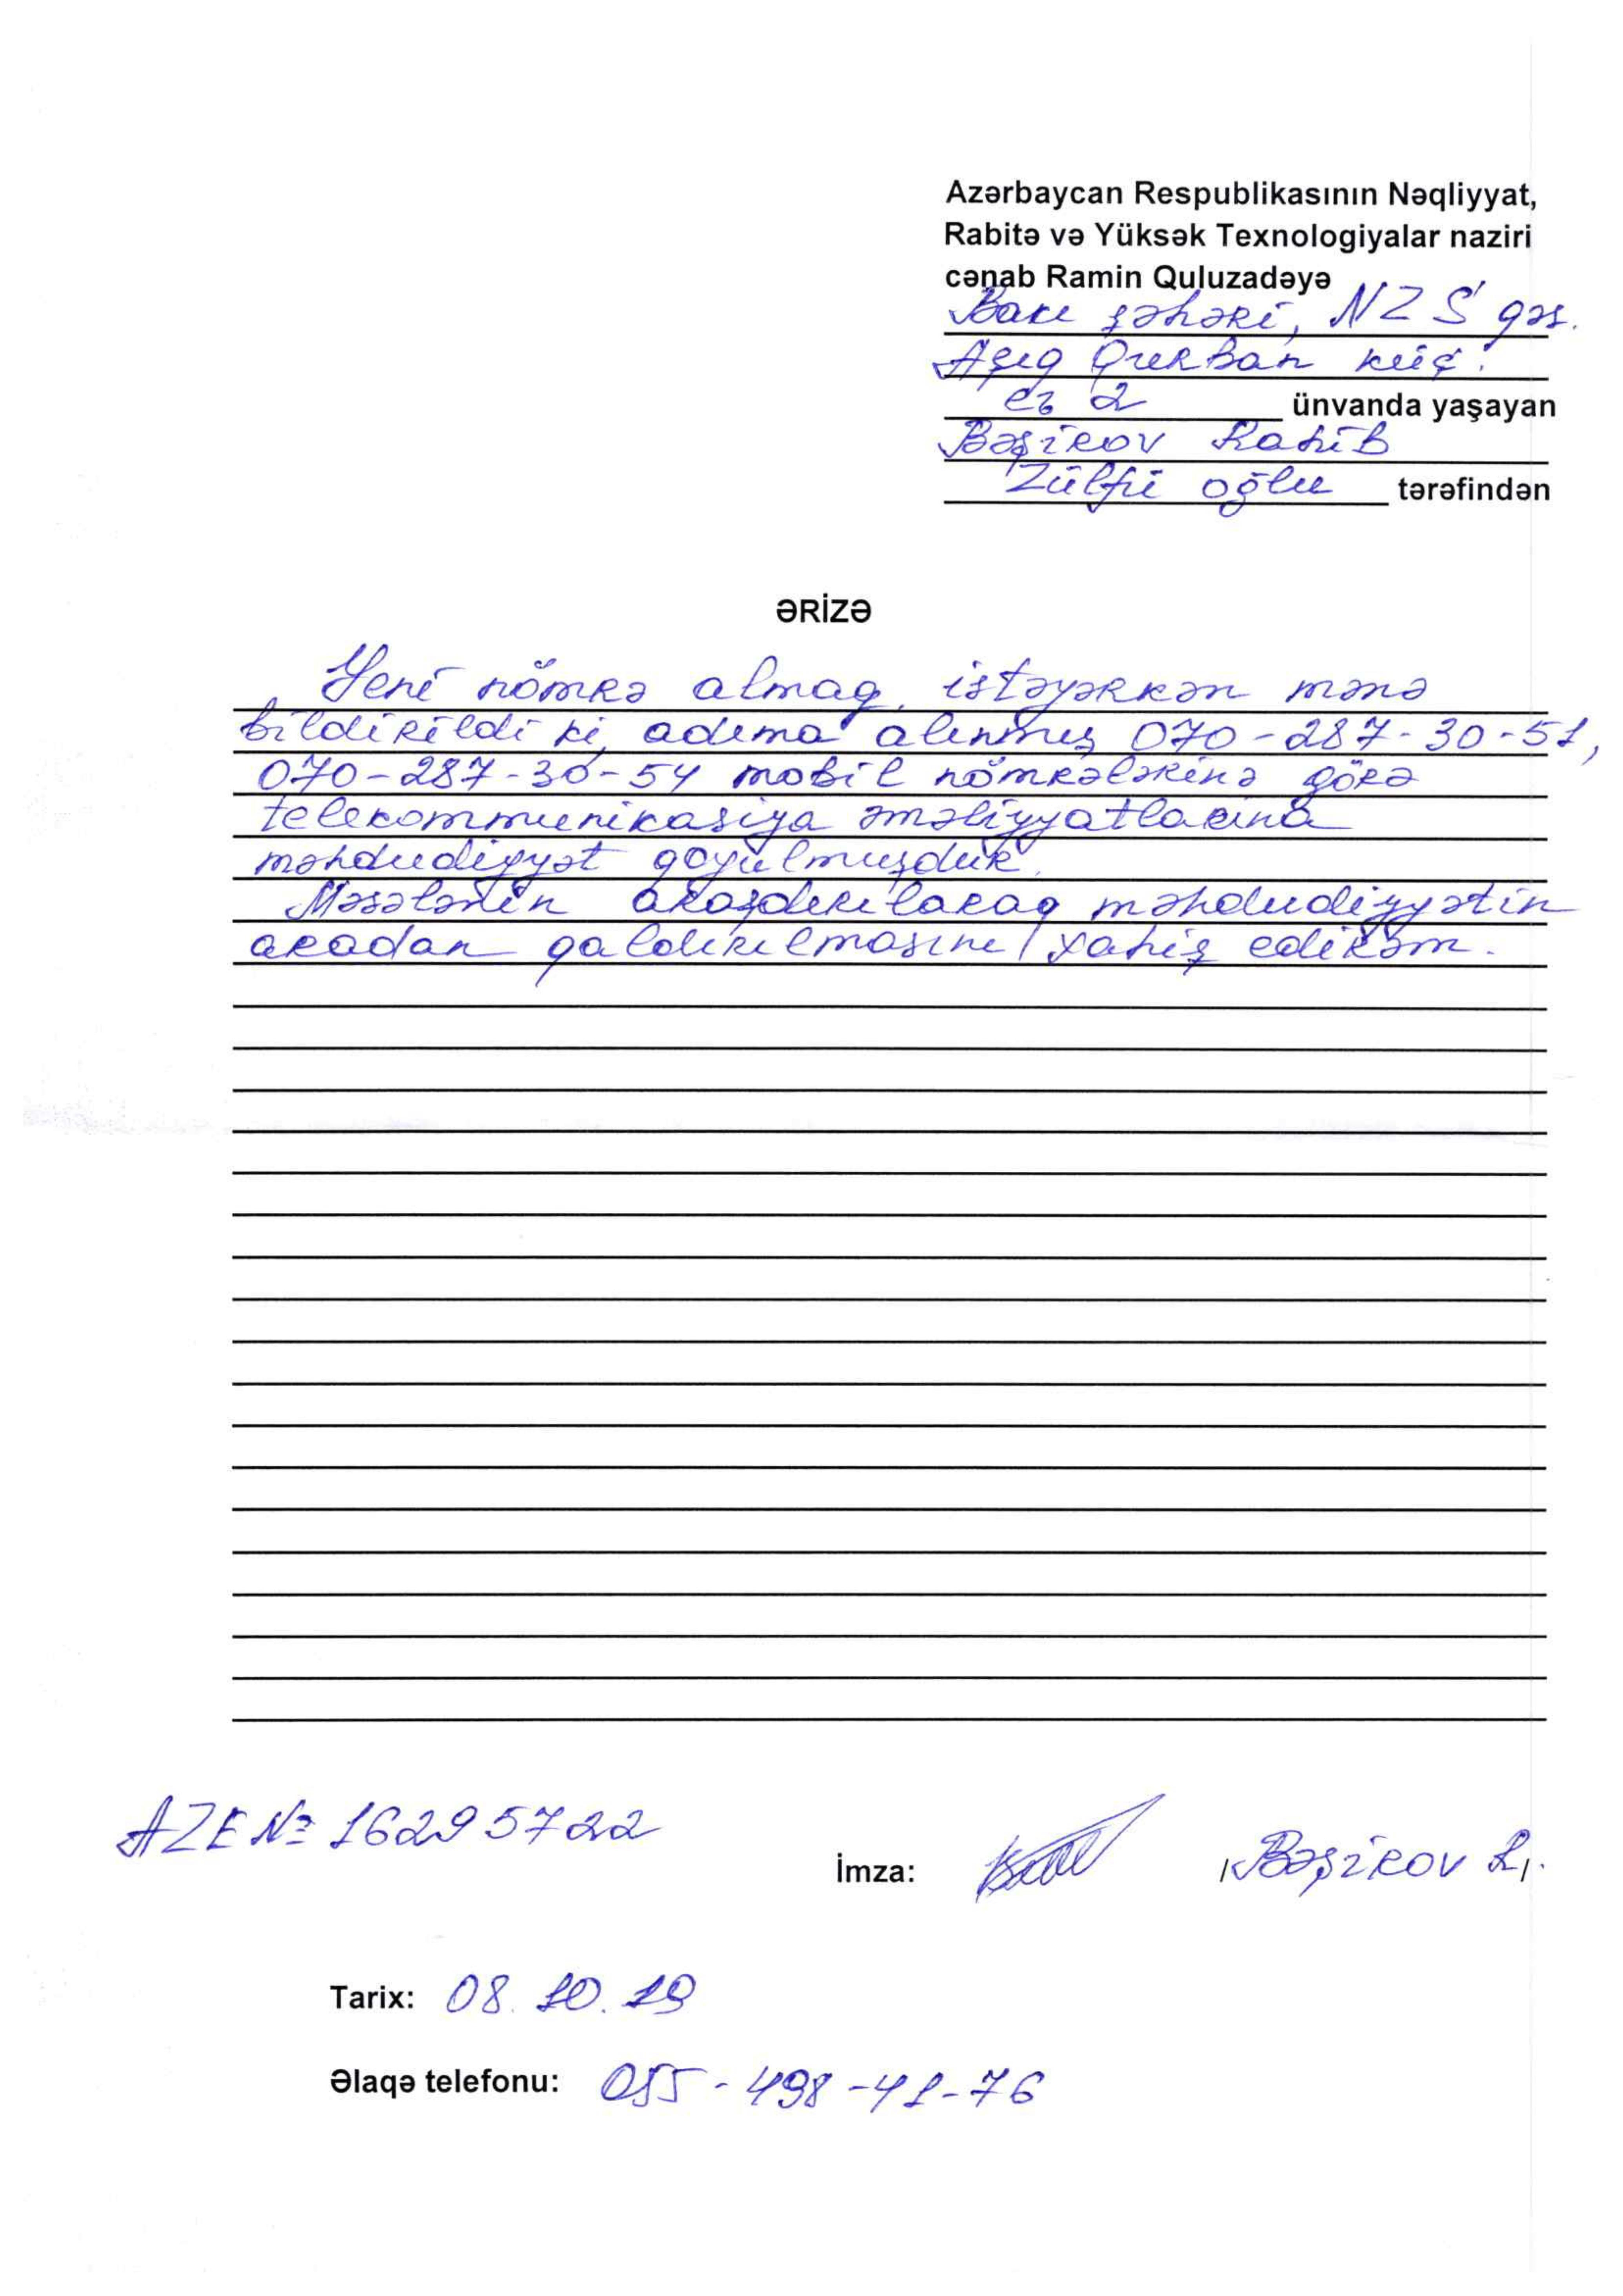 Azərbaycan Respublikasının Nəqliyyat,
Rabitə və Yüksək Texnologiyalar naziri
cənab Ramin Quluzadəyə
Bakı şəhəri, NZS qəs.
Aşıq Qurban küç.
ev 2 ünvanda yaşayan
Bəşirov Rahib
Zülfü oğlu tərəfindən
ƏRİZƏ
Yeni nömrə almaq istəyərkən mənə
bildirildi ki, adıma alınmış 070-287-30-51,
070-287-30-54 mobil nömrələrinə görə
telekommunikasiya əməliyyatlarına
məhdudiyyət qoyulmuşdur.
Məsələnin araşdırılaraq məhdudiyyətin
aradan qaldırılmasını xahiş edirəm.
AZE № 16295722
İmza: /Bəşirov R/.
Tarix: 08.10.19
Əlaqə telefonu: 055-498-41-76